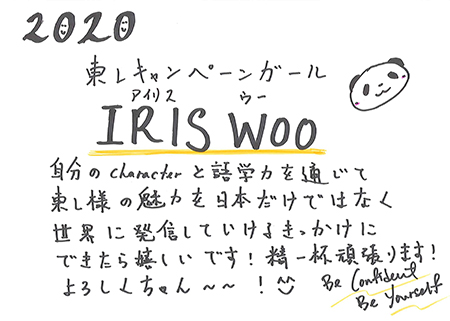 2020
東レキャンペーンガール
アイリス ウー
IRIS WOO
自分のcharacterと語学力を通じて
東レ様の魅力を日本だけではなく
世界に発信していけるきっかけに
できたら嬉しいです！精一杯頑張ります！
よろしくちゃん〜〜！
Be Confident
Be Yourself